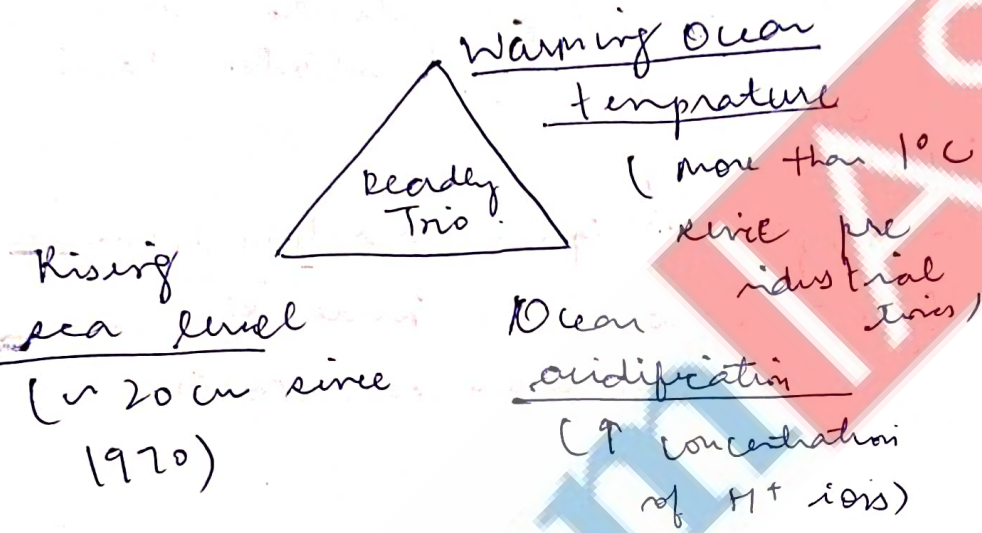 Warming Ocean
temprature
(more than 1°C
since pre
industrial
times)
Deadly
Trio.
Rising
sea level
(~ 20 cm since
1970)
Ocean
acidification
(↑ concentration
of H+ ions)